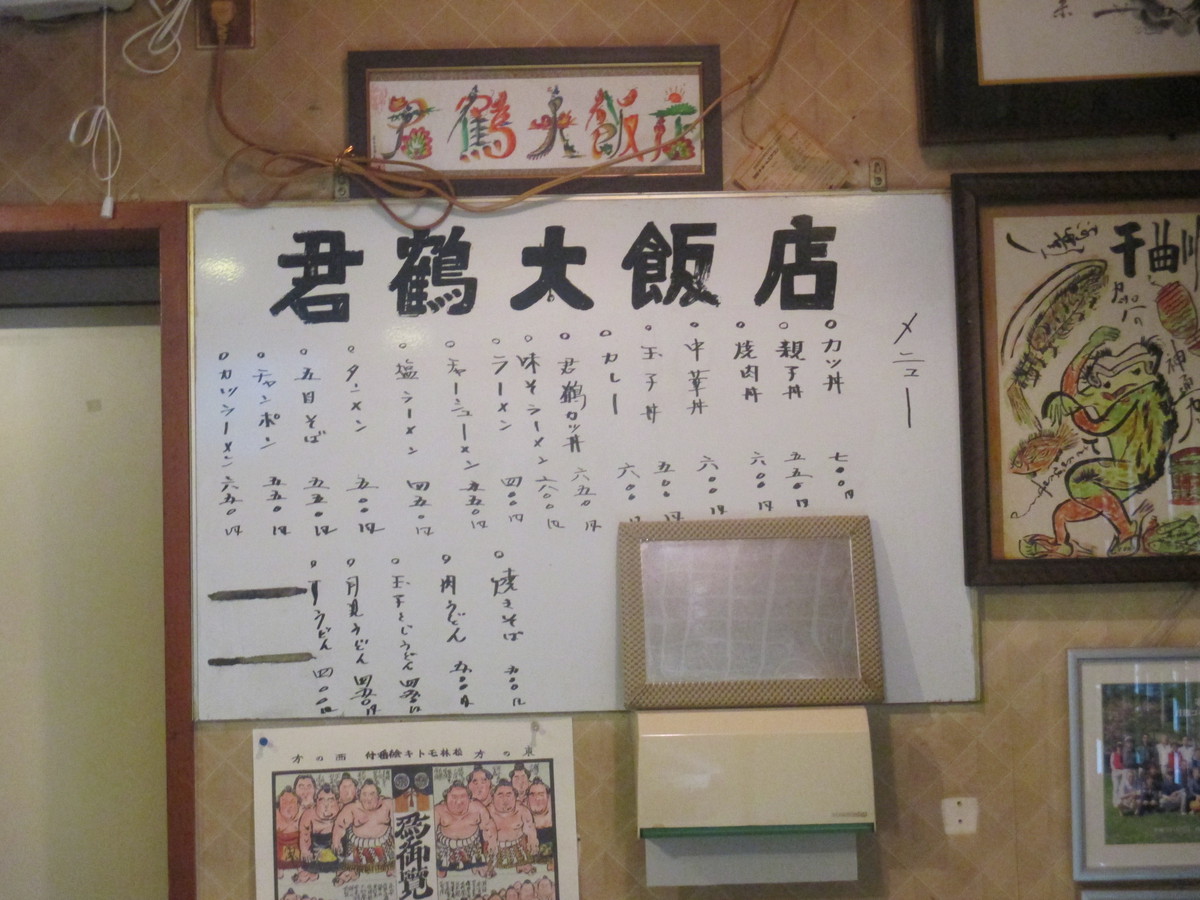 君鶴大飯店
君鶴大飯店
メニュー
カツ丼 七〇〇円
親子丼 五五〇円
焼肉丼 六〇〇円
中華丼 六〇〇円
玉子丼 五〇〇
カレー 六〇〇
君鶴カツ丼 六五〇円
味そラーメン 六〇〇円
ラーメン 四〇〇円
チャーシューメン 五五〇円
塩ラーメン 四五〇円
タンメン 五〇〇円
五目そば 五五〇円
チャンポン 五五〇円
カツラーメン 六五〇円
焼きそば 五〇〇円
肉うどん 五〇〇円
玉子とじうどん 四五〇円
月見うどん 四五〇円
うどん 四〇〇円
千曲川
東の方
西の方
為御覧